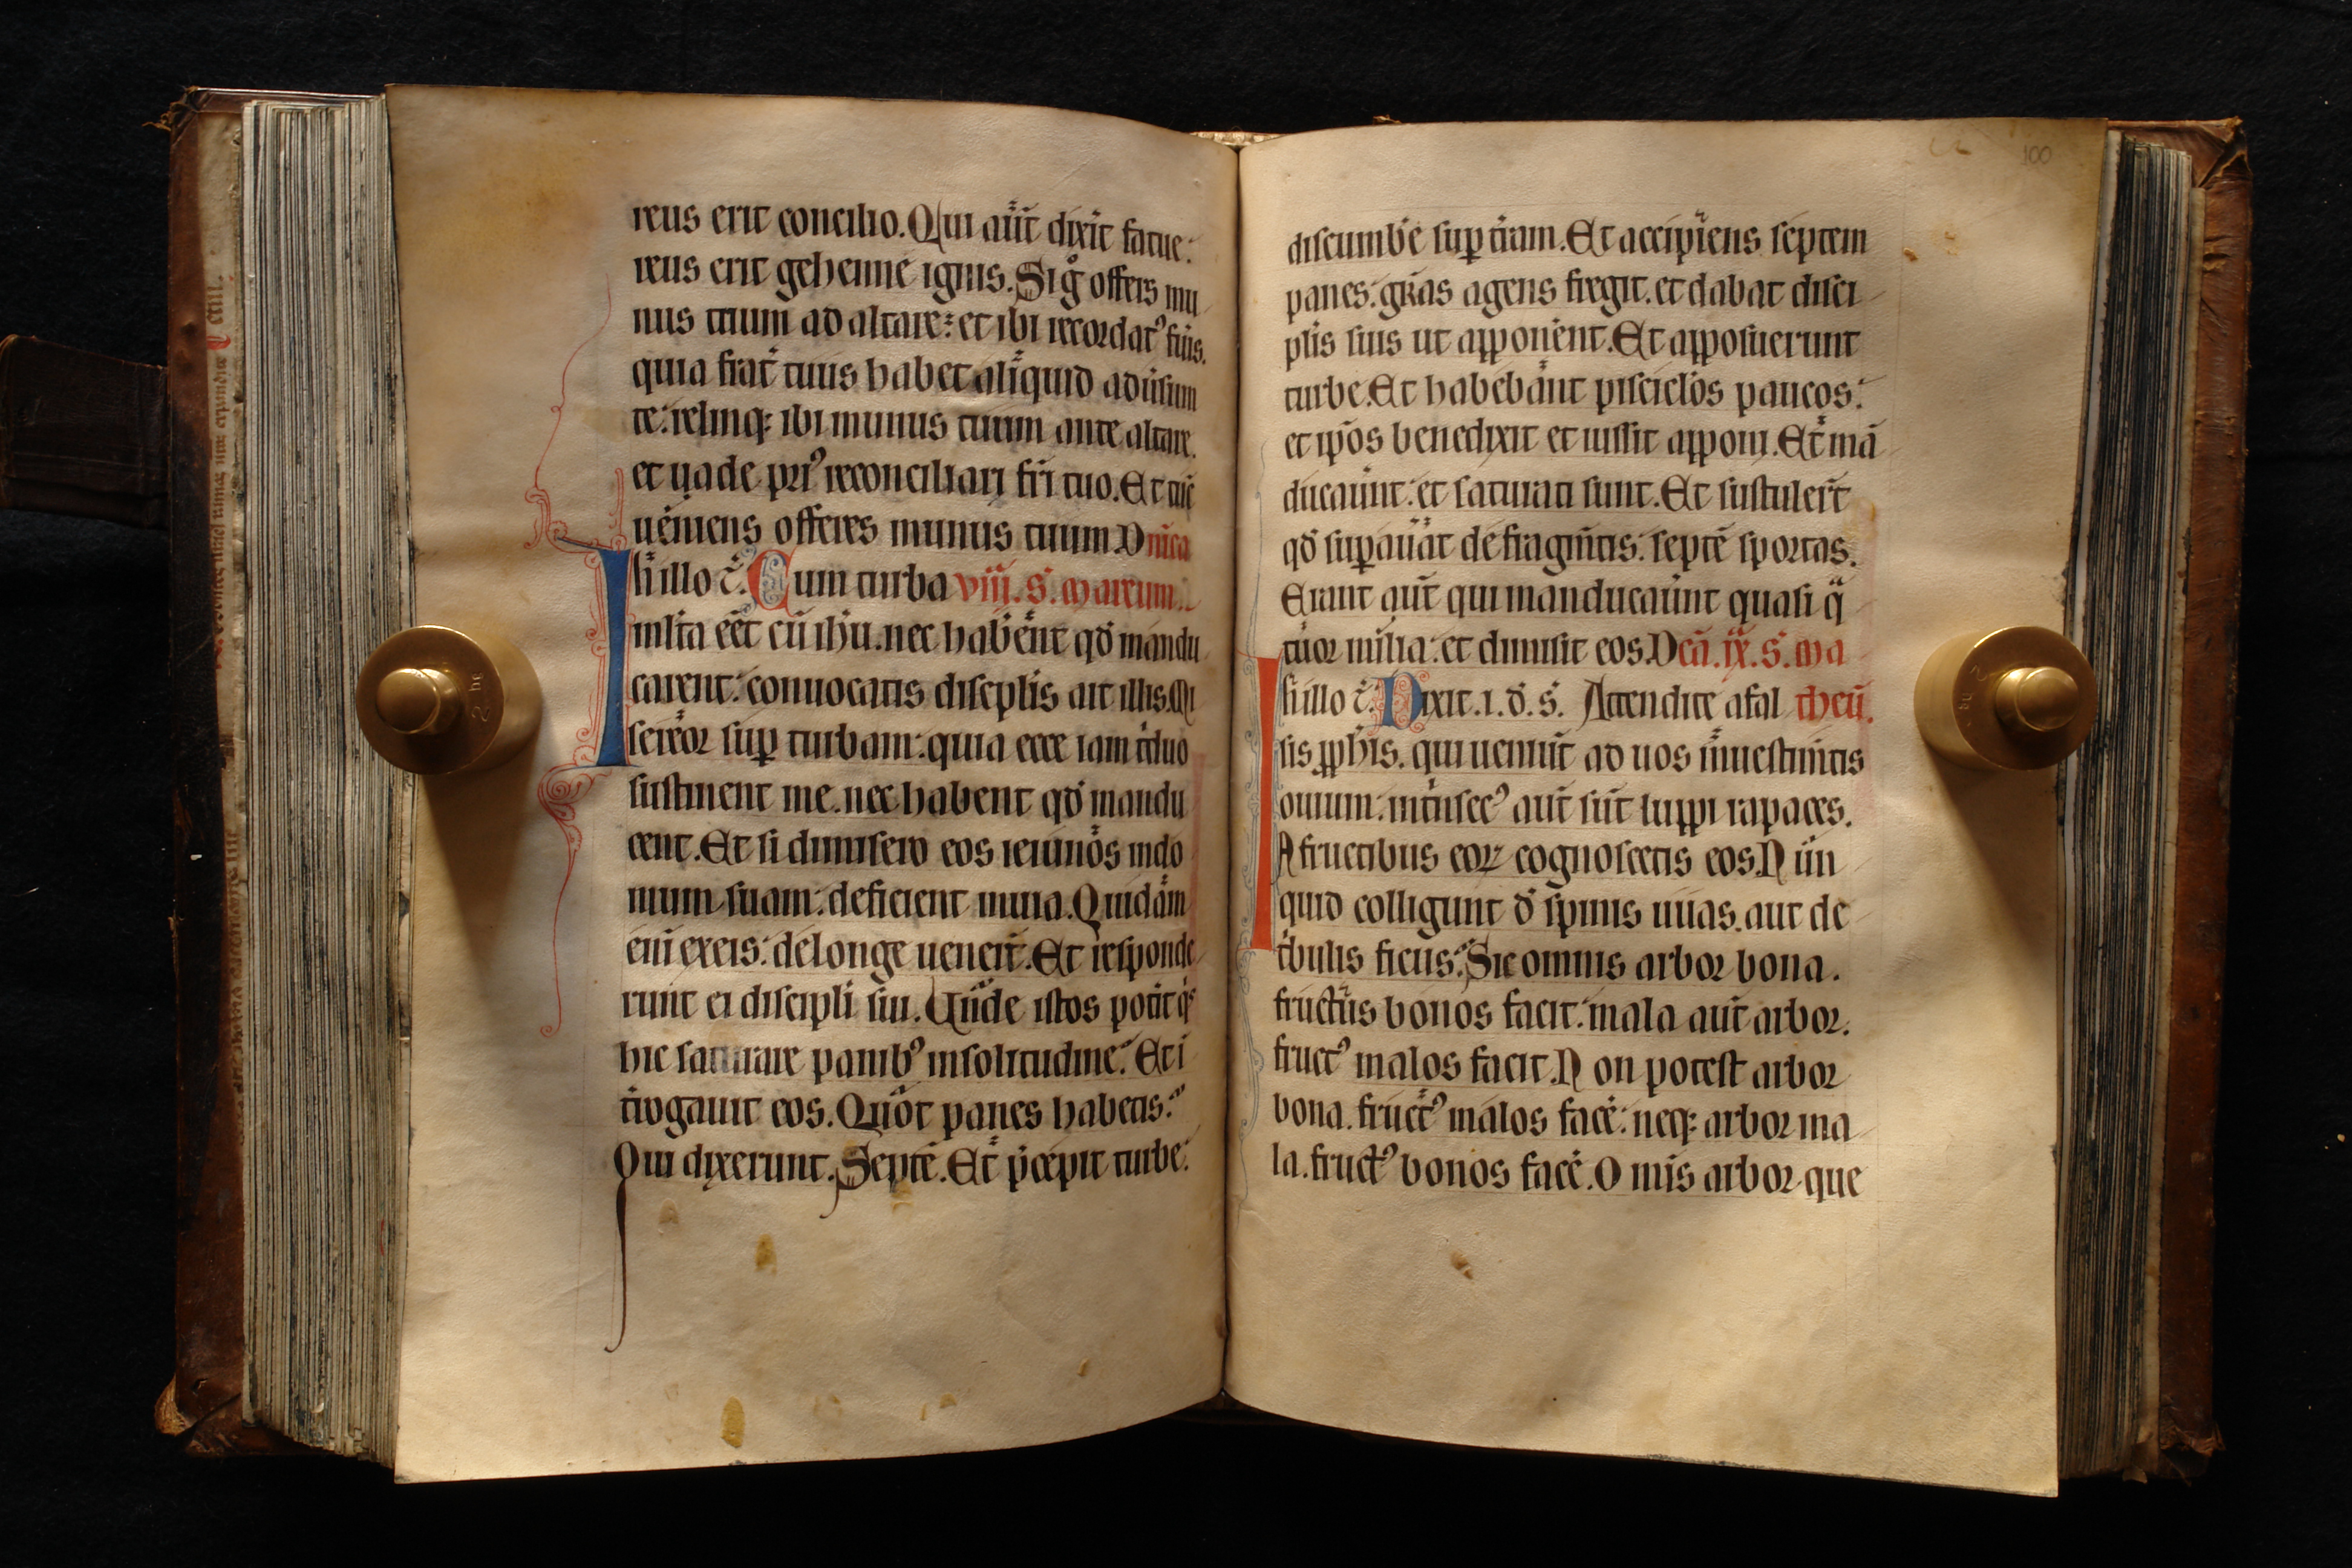 reus erit concilio. Qui aūt dixit fatue:
reus erit gehenne ignis. Si gͦ offers mu
nus tuum ad altare: et ibi recordatꝰ fuis.
quia frat̄ tuus habet aliquid adūsum
te: relinqꝫ ibi munus tuum ante altare.
et uade priꝰ reconciliari fri tuo. Et tūc
ueniens offeres munus tuum. Dnīca
In illo t̄. Cum turba viii. S. Marcum.
multa eēt cū ihū. nec habēnt qd̄ mandu
carent: conuocatis discplis ait illis. Mi
sereor suꝑ turbam: quia ecce iam tͥduo
sustinent me. nec habent qd̄ mandu
cent. Et si dimisero eos ieiunos indo
mum suam: deficient inuia. Quidam
enī exeis: delonge uenert̄. Et responde
runt ei discipli sui. Unde istos potit qͥs
hic saturare panibꝰ insolitudine. Et i
tͬogauit eos. Quot panes habetis:
Qui dixerunt. Septē. Et p̄cepit turbe:
100
discumbē suꝑ tͬam. Et accipiens septem
panes: grās agens fregit. et dabat disci
plis suis ut apponēnt. Et apposuerunt
turbe. Et habebant pisciclos paucos:
et ip̄os benedixit et iussit apponi. Et mā
ducauūnt: et saturati sunt. Et sustulert̄
qd̄ suꝑauāt de fragmtis: septē sportas.
Erant aūt qui manducauūnt quasi qͣ
tuor milia: et dimisit eos. Dcā. ix. S. Ma
In illo t̄. Dixit. i. d̄. s̄. Attendite afal theū.
sis ꝓphis. qui ueniūt ad uos inuestimtis
ouium: intͥnsecꝰ aūt sūt luppi rapaces.
A fructibus eoꝝ cognoscetis eos. Nūn
quid colligunt d̄ spinis uuas. aut de
tͥbulis ficus: Sic omnis arbor bona.
fructus bonos facit: mala aūt arbor.
fructꝰ malos facit. Non potest arbor
bona. fructꝰ malos facē: neqꝫ arbor ma
la. fructꝰ bonos facē. Omis arbor que